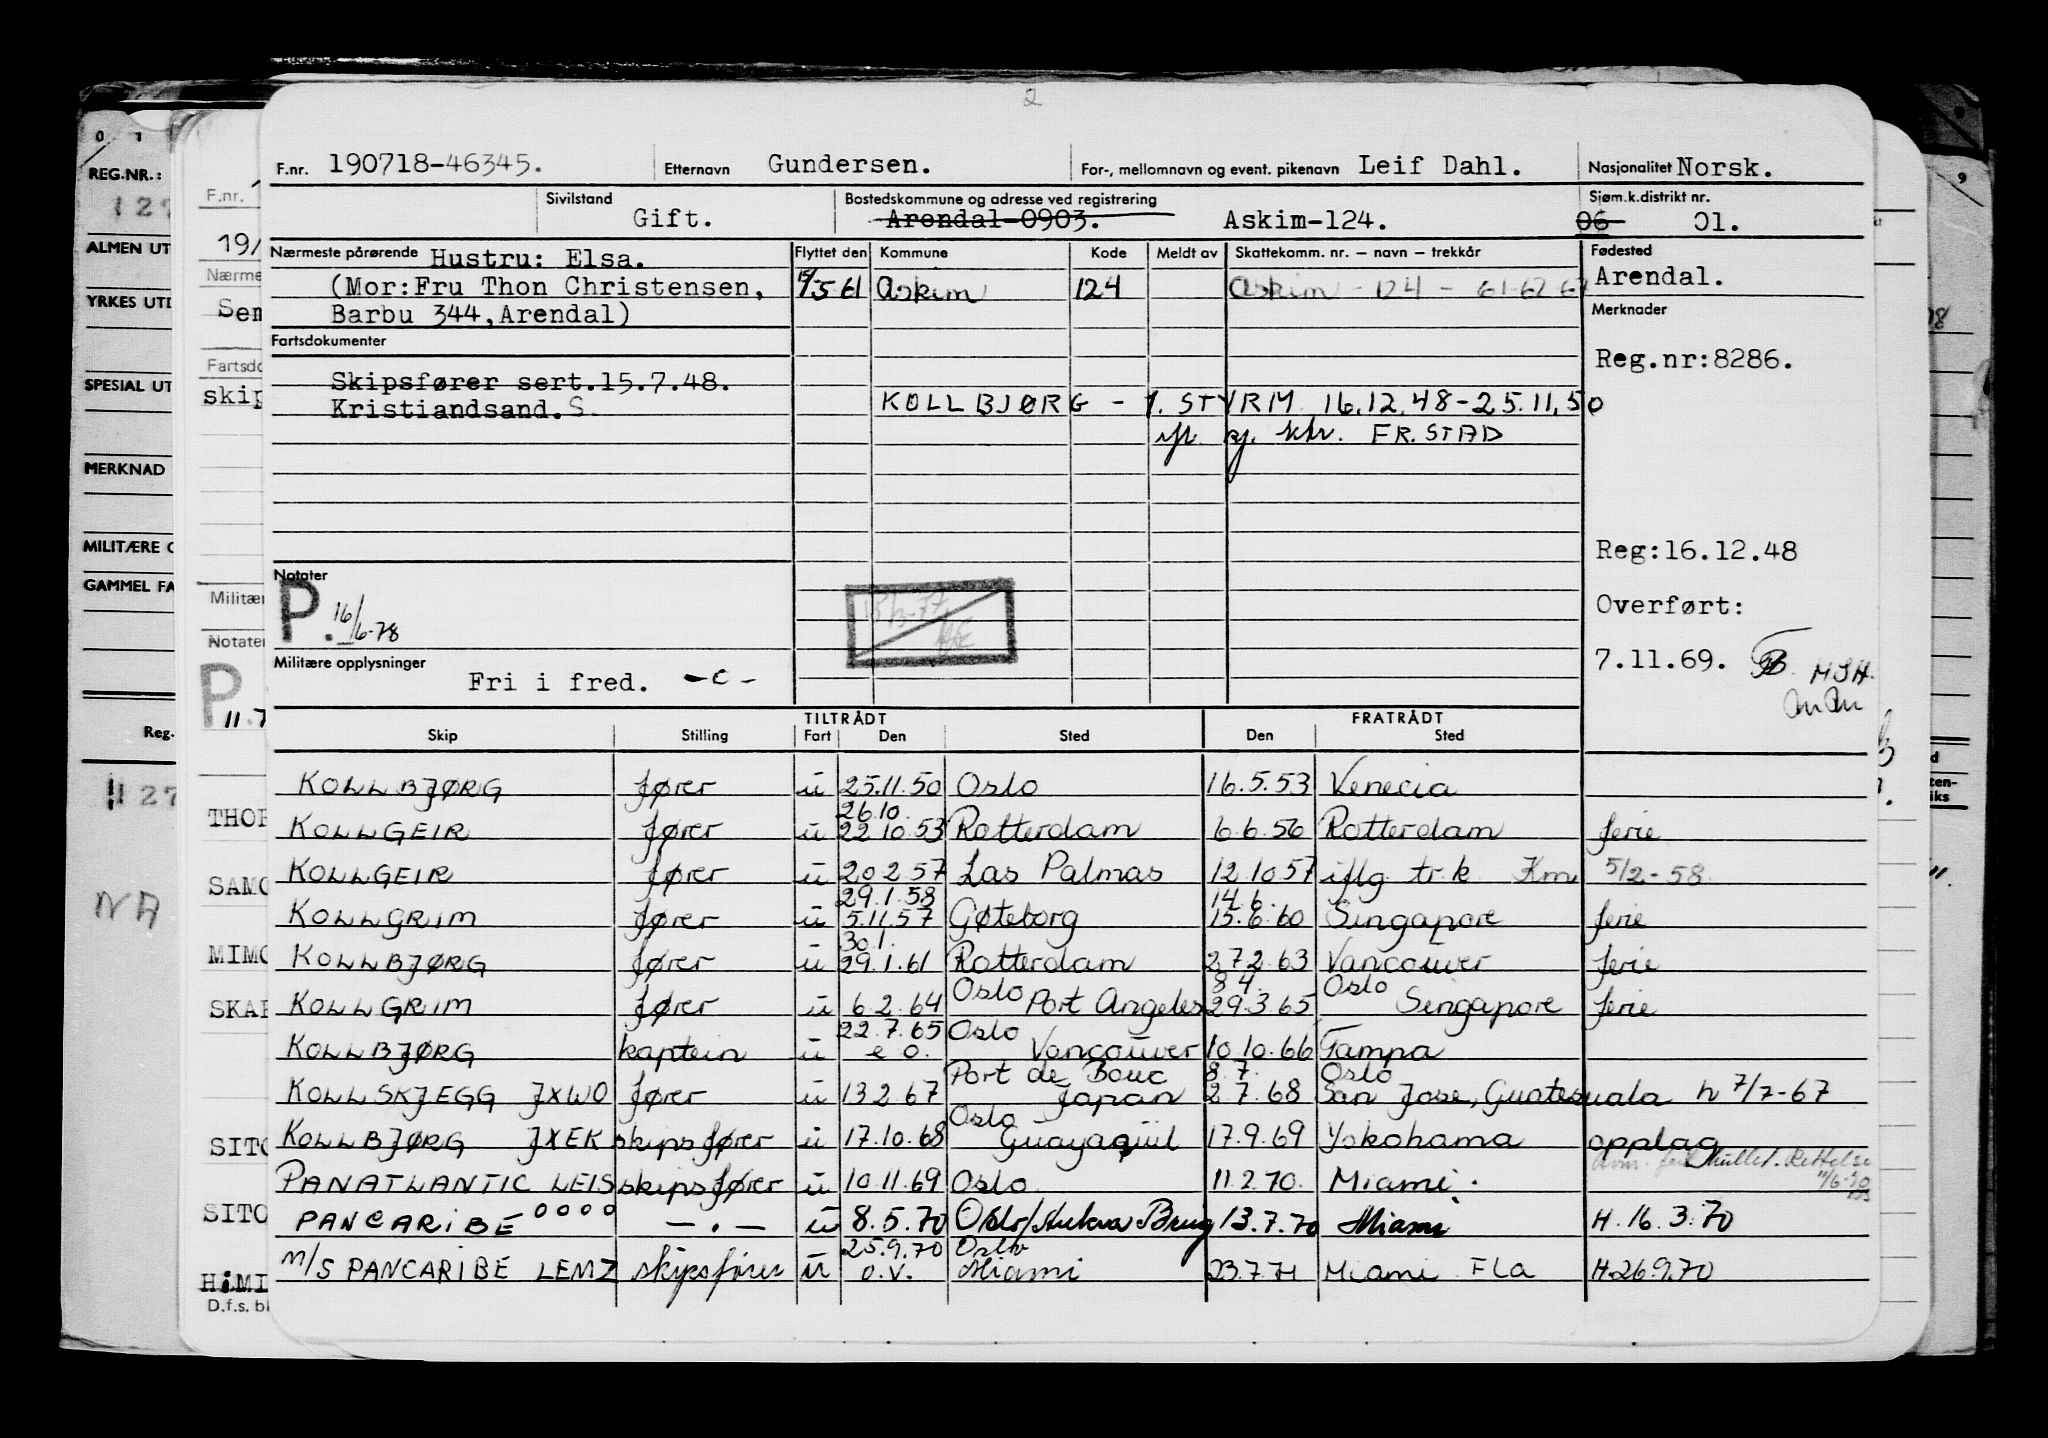 2
F.nr. 190718-46345. Etternavn Gundersen. For-, mellomnavn og event. pikenavn Leif Dahl. Nasjonalitet Norsk.
Sivilstand Gift. Bostedskommune og adresse ved registrering Arendal-0903. Askim-124. Sjøm.k.distrikt nr. 06 01.
Nærmeste pårørende Hustru: Elsa. Flyttet den Kommune Kode Meldt av Skattekomm. nr. – navn – trekkår Fødested
(Mor:Fru Thon Christensen, 15/5 61 Askim 124 Askim - 124 - 61-62 Arendal.
Barbu 344, Arendal) Merknader
Fartsdokumenter
Reg.nr:8286.
Skipsfører sert.15.7.48.
Kristiandsand.S. KOLLBJØRG - 1. STYRM 16.12.48-25.11.50
FR.STAD
Reg:16.12.48
Notater
P. 16/6-78
Overført:
Militære opplysninger
7.11.69. MSH.
Fri i fred. -c-
TILTRÅDT FRATRÅDT
Skip Stilling Fart Den Sted Den Sted
KOLLBJØRG fører u 25.11.50 Oslo 16.5.53 Venecia
26.10.
KOLLGEIR fører u 22.10.53 Rotterdam 6.6.56 Rotterdam ferie
KOLLGEIR fører u 20.2.57 Las Palmas 12.10.57 iflg tr.k Km 5/2-58
29.1.58 14.6.
KOLLGRIM fører u 5.11.57 Gøteborg 15.6.60 Singapore ferie
30.1.
KOLLBJØRG fører u 29.1.61 Rotterdam 27.2.63 Vancouver ferie
Oslo 8.4. Oslo
KOLLGRIM fører u 6.2.64 Port Angeles 29.3.65 Singapore ferie
22.7.65 Oslo
KOLLBJØRG kaptein u e o. Vancouver 10.10.66 Tampa
Port de Bouc 8.7. Oslo
KOLLSKJEGG JXWO fører u 13.2.67 Japan 2.7.68 San Jose, Guatemala h 7/7-67
Oslo
KOLLBJØRG JXEK skipsfører u 17.10.68 Guayaquil 17.9.69 Yokohama opplag
PANATLANTIC LEIS skipsfører u 10.11.69 Oslo 11.2.70. Miami. Rettelse
PANCARIBE oooo — . — u 8.5.70 Oslo/Aukra Brug 13.7.70 Miami H. 16.3.70
25.9.70 Oslo
M/S PANCARIBE LEMZ skipsfører u o.v. Miami 23.7.71 Miami Fla H.26.9.70
0 1
REG.NR.:
127
ALMEN UT
YRKES UTD
SPESIAL UT
MERKNAD
MILITÆRE O
GAMMEL FA
Reg.
1127
NA
F.nr.
19/
Nærme
Sem
Fartsdo
skip
Militær
Notater
P
11.7
THOR
SAMO
MIMO
SKAR
SITO
SITO
HiMI
D.f.s. bl
9